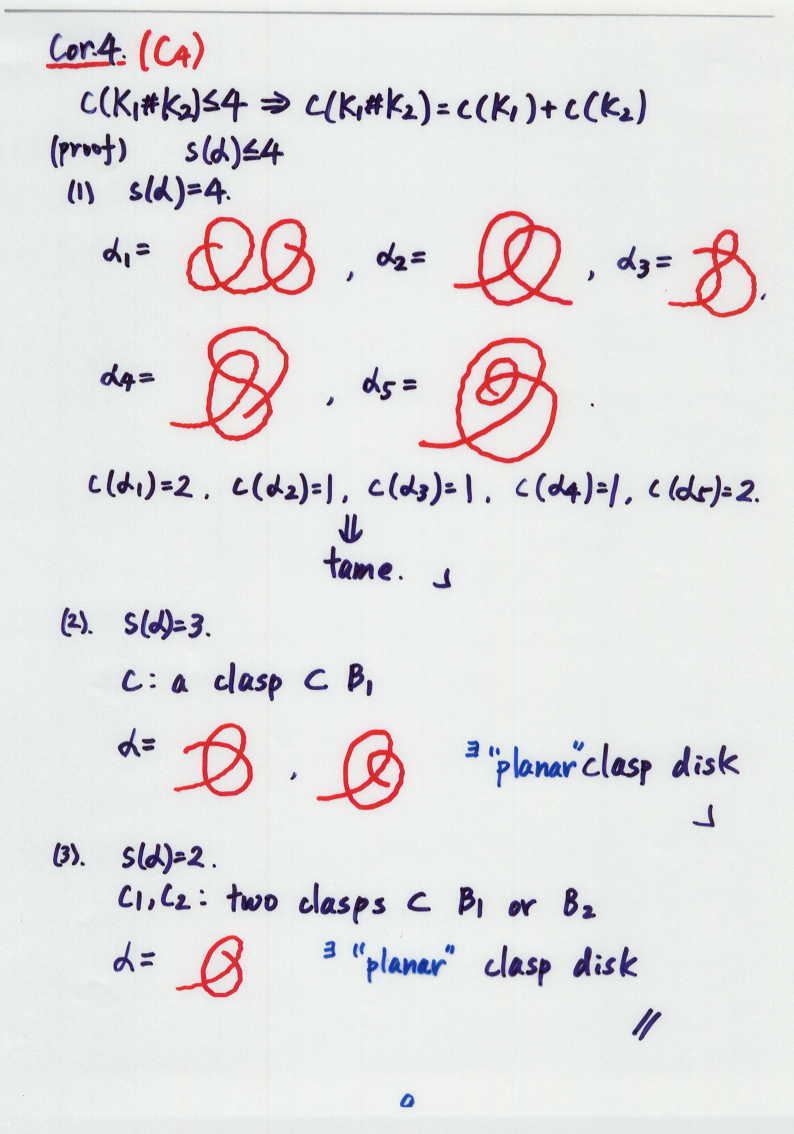 Cor.4. (C4)
C(K1#K2)≤4 ⇒ C(K1#K2)=C(K1)+C(K2)
(proof) S(α)≤4
(1) S(α)=4.
α1= , α2= , α3= .
α4= , α5= .
C(α1)=2, C(α2)=1, C(α3)=1, C(α4)=1, C(α5)=2.
⇓
tame. 」
(2). S(α)=3.
C: a clasp ⊂ B1
α= , ∃ "planar" clasp disk
」
(3). S(α)=2.
C1, C2: two clasps ⊂ B1 or B2
α= ∃ "planar" clasp disk
//
0